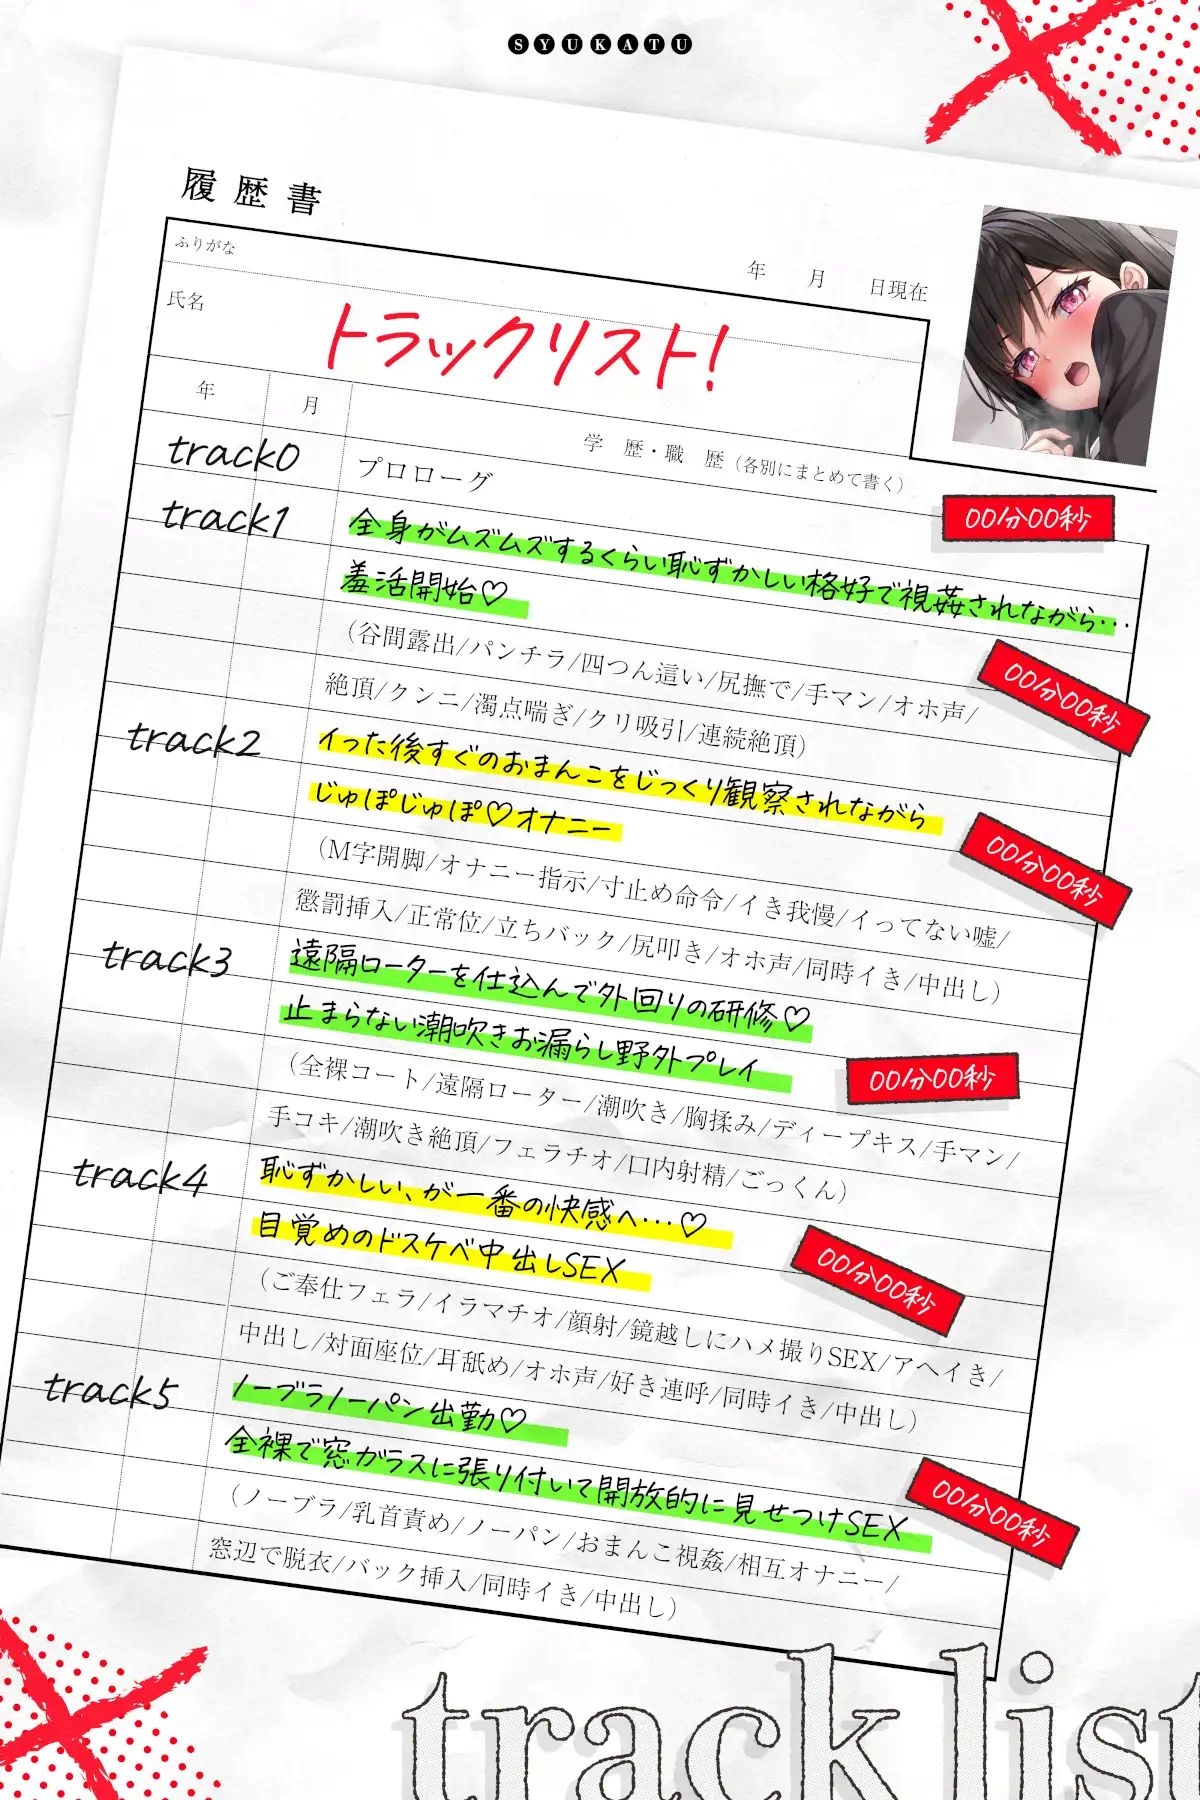 SYUKATU
履歴書
ふりがな
年 月 日現在
氏名
トラックリスト!
年 月 学 歴・職 歴(各別にまとめて書く)
track0 プロローグ
00分00秒
track1 全身がムズムズするくらい恥ずかしい格好で視姦されながら…
羞活開始♡
(谷間露出/パンチラ/四つん這い/尻撫で/手マン/オホ声/
絶頂/クンニ/濁点喘ぎ/クリ吸引/連続絶頂)
00分00秒
track2 イった後すぐのおまんこをじっくり観察されながら
じゅぽじゅぽ♡オナニー
(M字開脚/オナニー指示/寸止め命令/イき我慢/イってない嘘/
懲罰挿入/正常位/立ちバック/尻叩き/オホ声/同時イき/中出し)
00分00秒
track3 遠隔ローターを仕込んで外回りの研修♡
止まらない潮吹きお漏らし野外プレイ
(全裸コート/遠隔ローター/潮吹き/胸揉み/ディープキス/手マン/
手コキ/潮吹き絶頂/フェラチオ/口内射精/ごっくん)
00分00秒
track4 恥ずかしい、が一番の快感へ…♡
目覚めのドスケベ中出しSEX
(ご奉仕フェラ/イラマチオ/顔射/鏡越しにハメ撮りSEX/アヘイき/
中出し/対面座位/耳舐め/オホ声/好き連呼/同時イき/中出し)
00分00秒
track5 ノーブラノーパン出勤♡
全裸で窓ガラスに張り付いて開放的に見せつけSEX
(ノーブラ/乳首責め/ノーパン/おまんこ視姦/相互オナニー/
窓辺で脱衣/バック挿入/同時イき/中出し)
00分00秒
track list